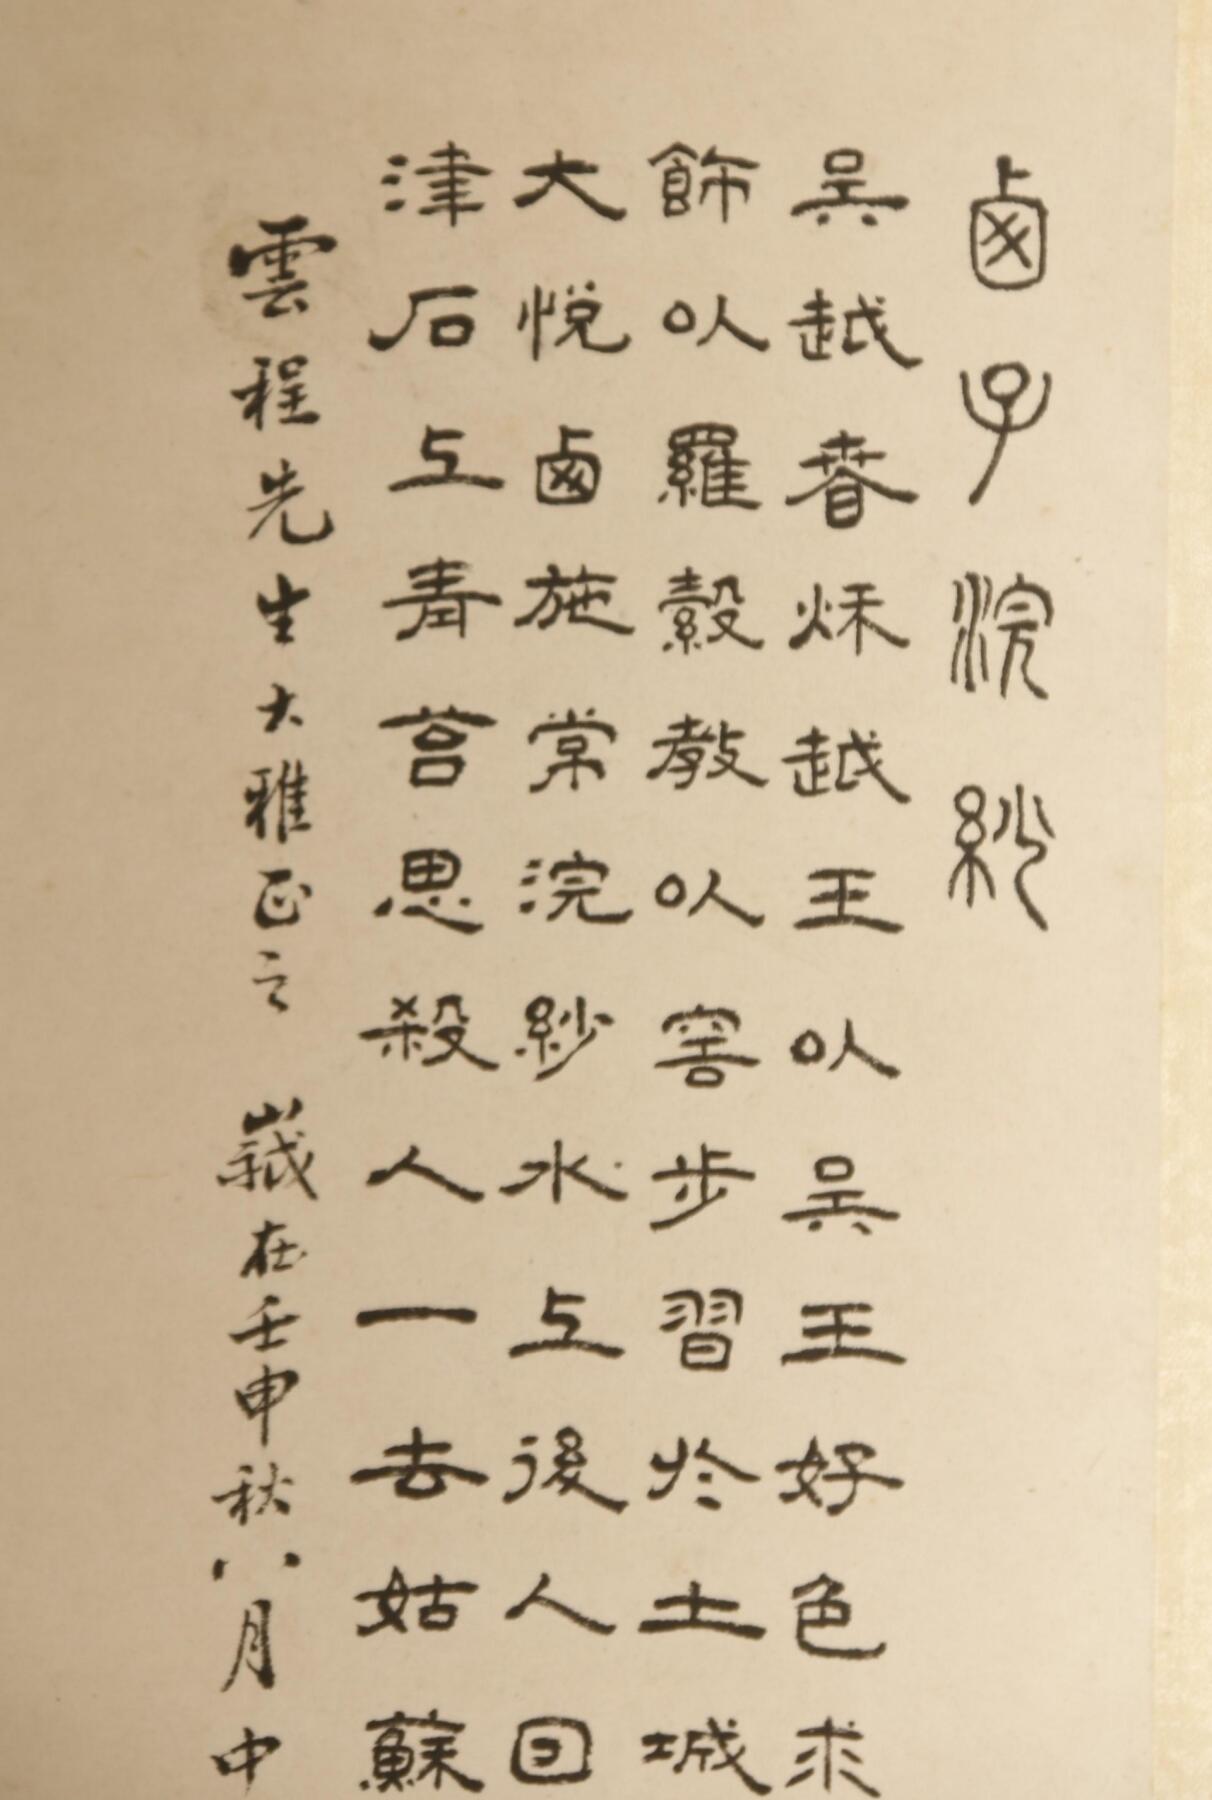 鹵子浣紗
吳越春秋越王以吳王好色求
飾以羅縠教以容步習於土城
大悅鹵施常浣紗水上後人回
津石上青苔思殺人一去姑蘇
雲程先生大雅正之 歲在壬申秋八月中